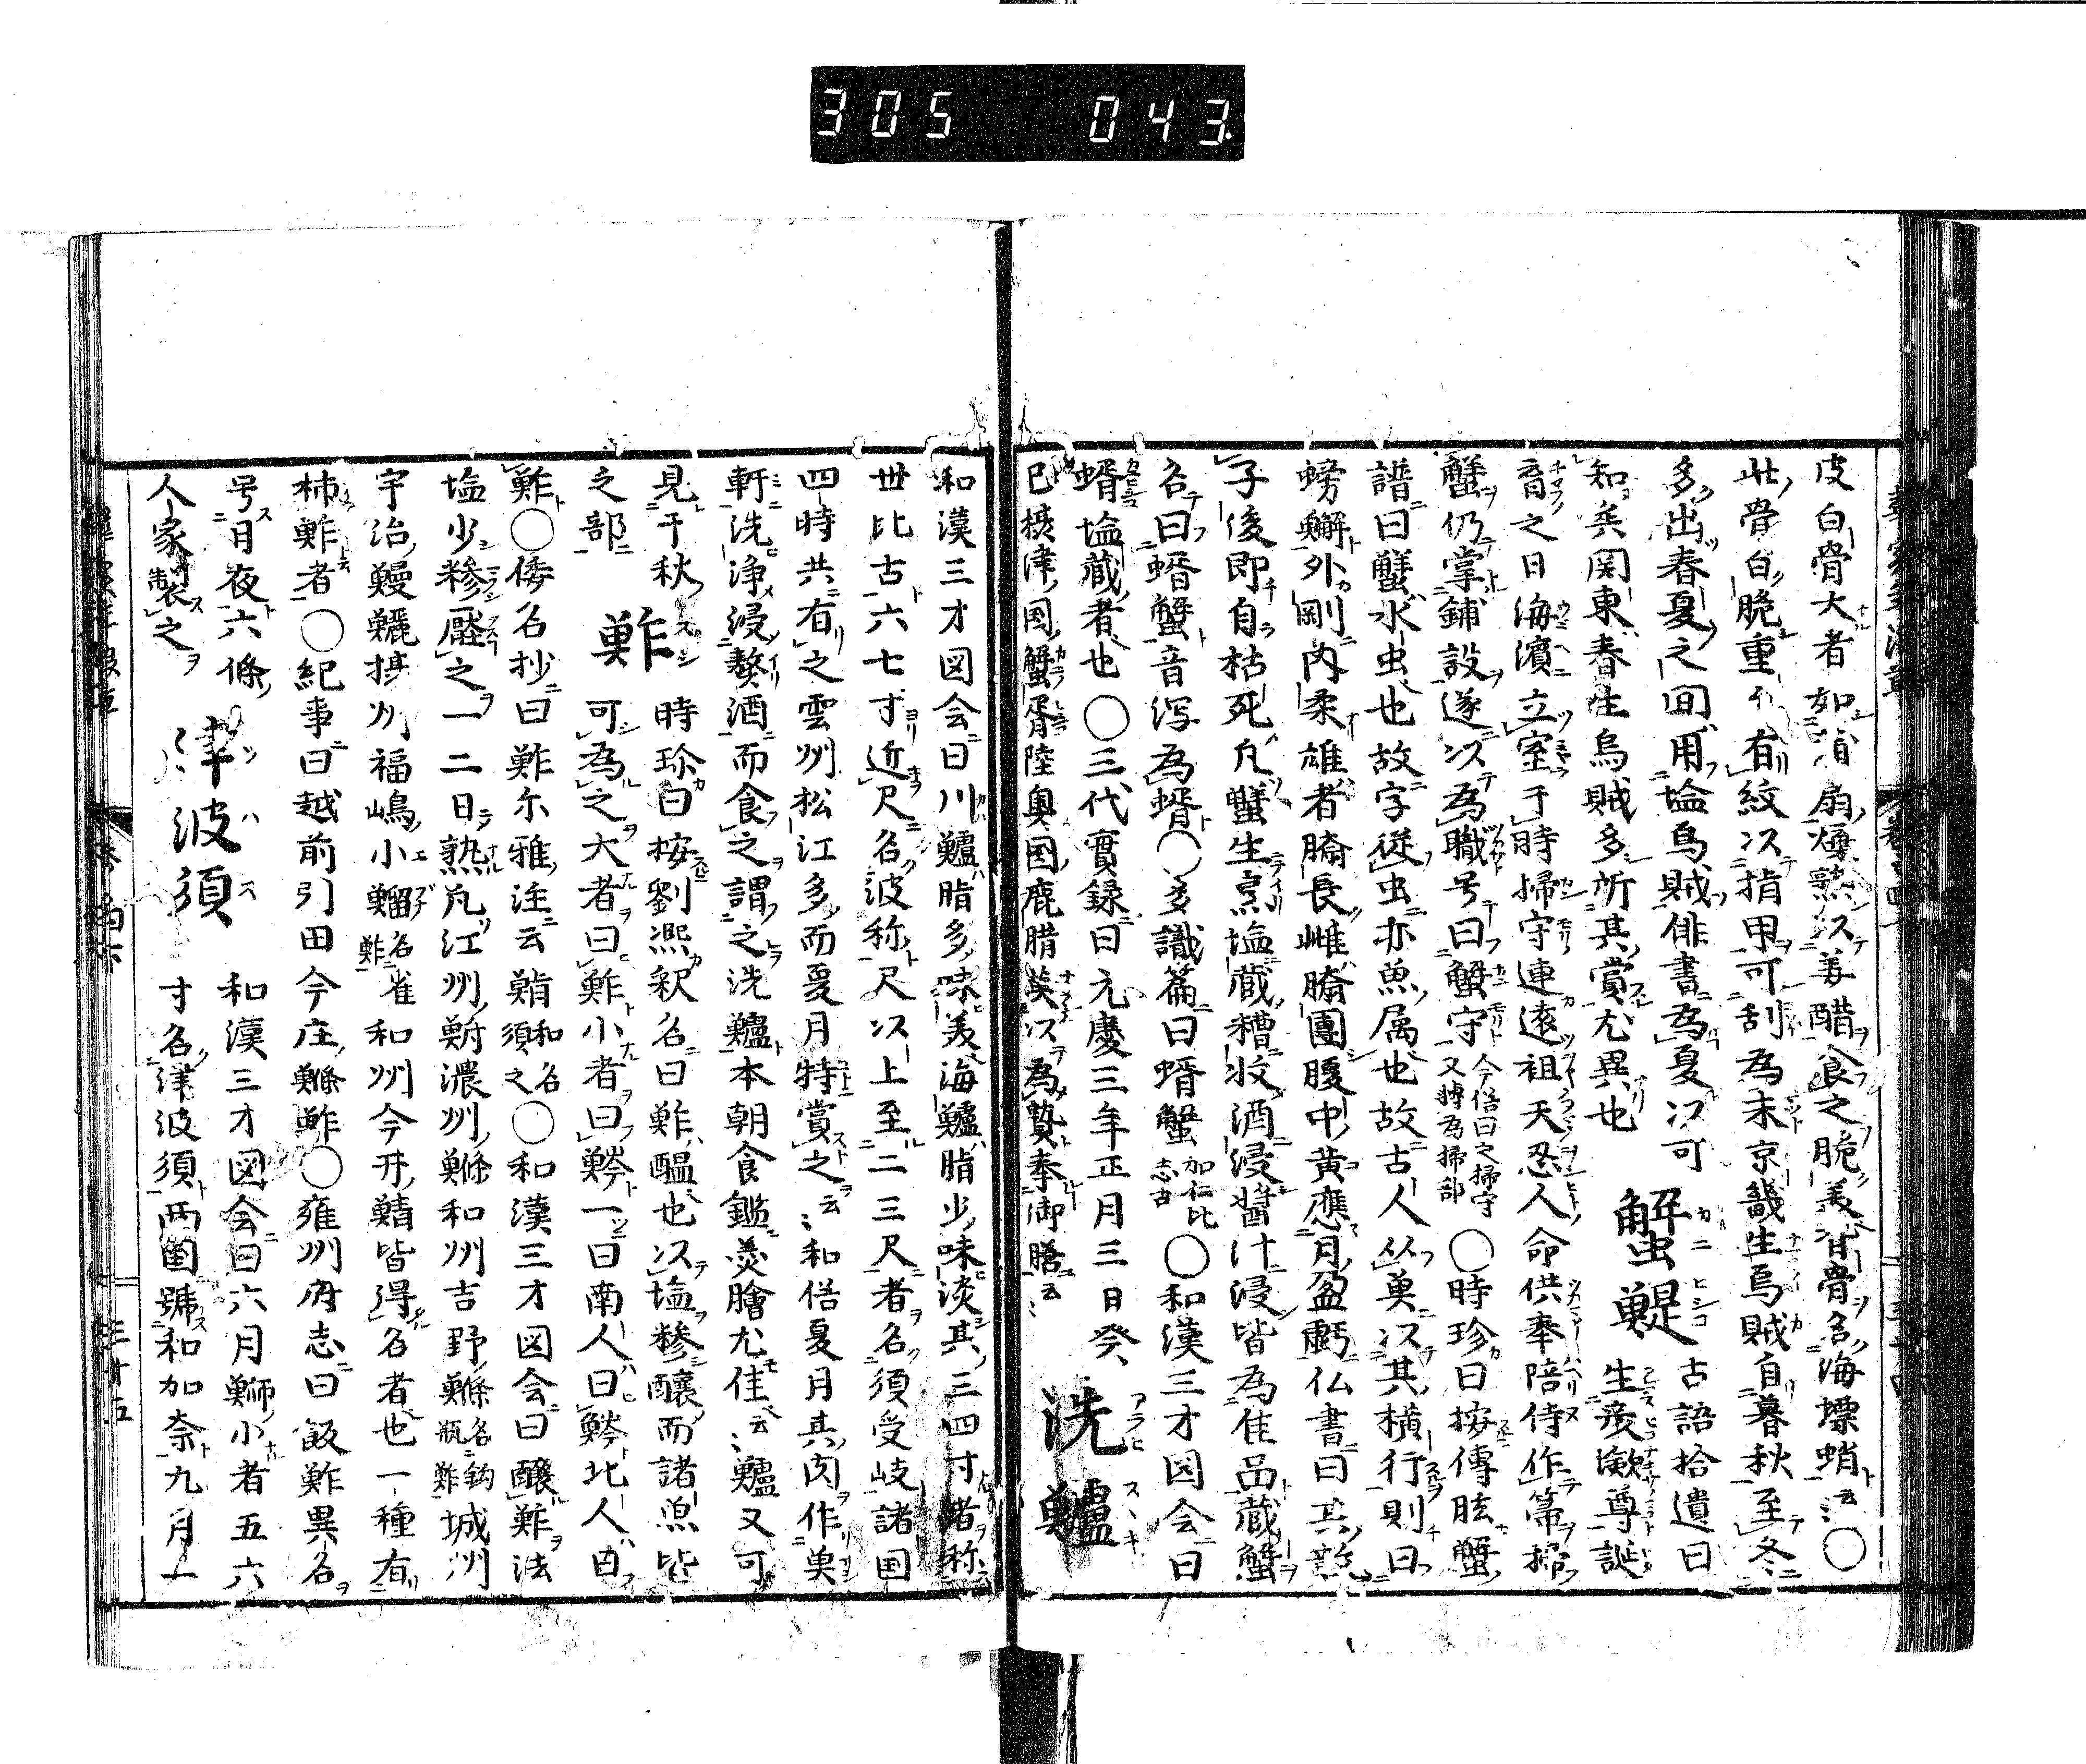 305 043
皮白骨大者如 扇煠熟以姜醋食之脆美背骨名海螵蛸云〻〇
此骨白脆重 有紋以指甲可刮為末京畿生烏賊自暮秋至冬
多出春夏之間用塩烏賊俳書為夏以可
知矣関東春生烏賊多所其賞尤異也
蟹 鯷
古語拾遺曰
生彦瀲尊誕
育之日海濱立室于時掃守連遠祖天忍人命供奉陪侍作箒掃
蟹仍掌鋪設遂以為職号曰蟹守今俗曰之掃守又轉為掃部〇時珍曰按傅肱蟹
譜曰蟹水虫也故字從虫亦魚属也故古人从魚以其横行則曰
螃蟹外剛内柔雄者臍長雌臍團腹中黄應月盈虧仏書曰其散
子後即自枯死凡蟹生烹塩蔵糟收酒浸醬汁浸皆為佳品蔵蟹
名曰蝑蟹音瀉為蝑〇多識篇曰蝑蟹加仁比志古〇和漢三才図会曰
蝑塩蔵者也〇三代實録曰元慶三年正月三日癸
巳摂津国蟹胥陸奥国鹿腊莫以為贄奉御膳云〻
洗鱸
和漢三才図会曰川鱸脂多味美海鱸脂少味淡其三四寸者称
世比古六七寸近尺名波称尺以上至二三尺者名須受岐諸国
四時共有之雲州松江多而夏月特賞之云〻和俗夏月其肉作魚
軒洗浄浸熬酒而食之謂之洗鱸本朝食鑑羮膾尤佳云〻鱸又可
見于秋之部
鮓
時珍曰按劉熙釈名曰鮓醞也以塩糝醸而諸魚皆
可為之大者曰鮓小者曰䰼一曰南人曰䰼北人曰
鮓〇倭名抄曰鮓尓雅注云鮨和名須之〇和漢三才図会曰醸鮓法
塩少糝壓之一二日熟凡江州鮒濃州鰷和州吉野鰷名釣瓶鮓城州
宇治鰻鱺摂州福嶋小鰡名雀鮓和州今井鯖皆得名者也一種有
柿鮓者〇紀事曰越前引田今庄鰷鮓〇雍州府志曰飯鮓異名
号月夜六條
人家製之
津波須
和漢三才図会曰六月鰤小者五六
寸名津波須西国號和加奈九月一